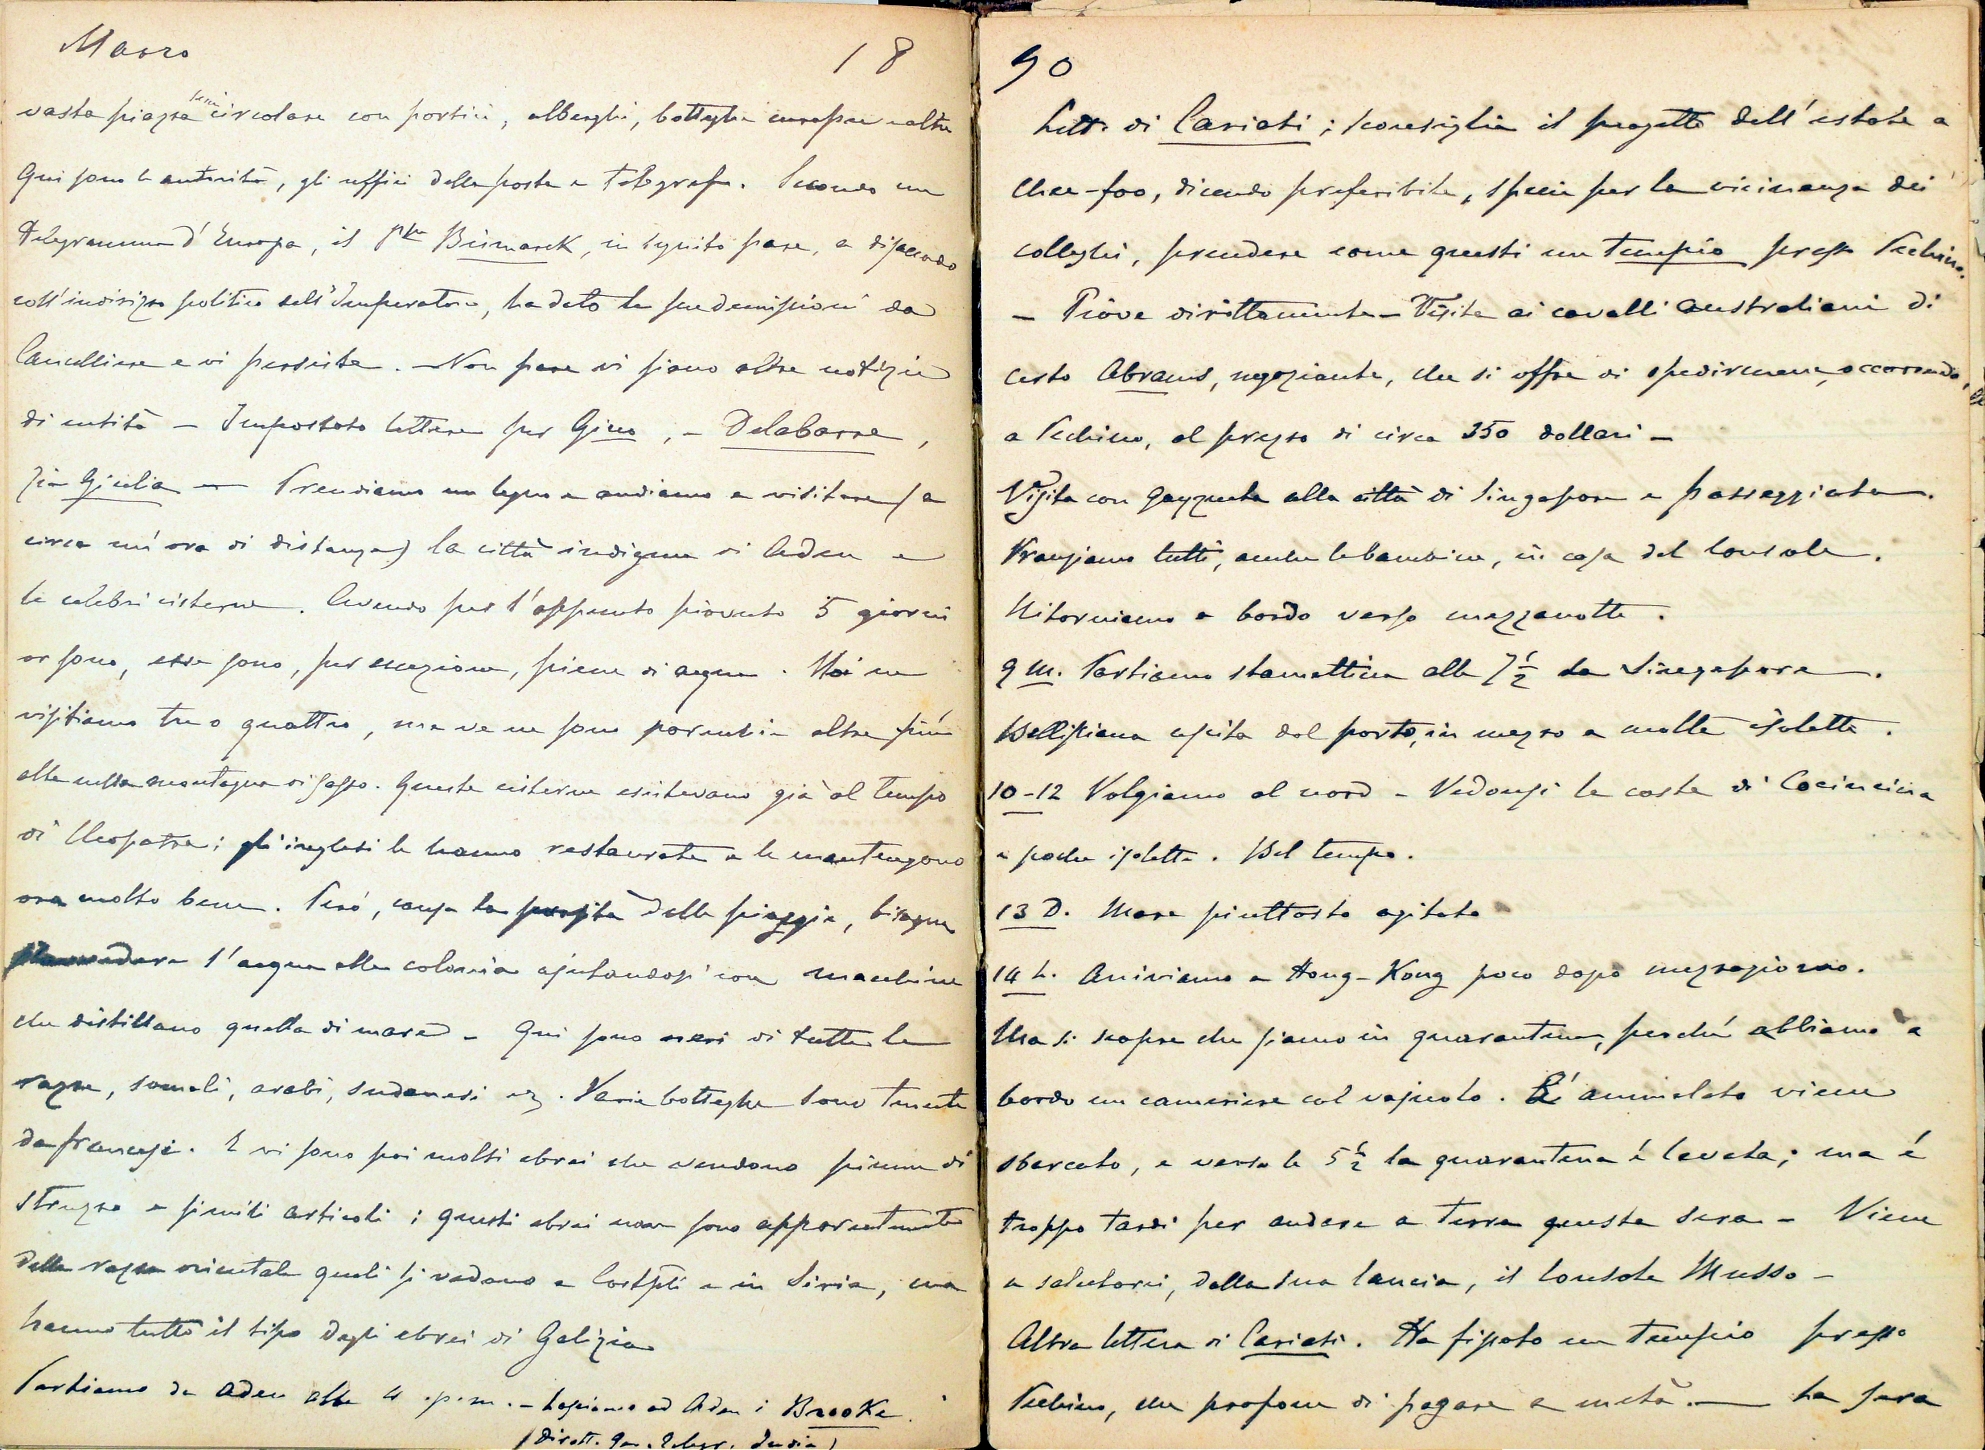 Marzo 18
vasta piazza semicircolare con portici, alberghi, botteghe europee e altre
Qui sono le autorità, gli uffici della posta e telegrafo. Secondo un
telegramma d'Europa, il Pce Bismarck, in seguito pare, a disaccordo
coll'indirizzo politico dell'Imperatore, ha dato le sue demissioni da
Cancelliere e vi persiste. — Non pare vi siano altre notizie
di entità — Impostato lettere per Gino, — Delabarre,
Zia Giulia — Prendiamo un legno e andiamo a visitare (a
circa un'ora di distanza) la città indigena di Aden e
le celebri cisterne. Avendo per l'appunto piovuto 5 giorni
or sono, esse sono, per eccezione, piene di acqua. Noi ne
visitiamo tre o quattro, ma ve ne sono parecchie altre più
alte nella montagna di sasso. Queste cisterne esistevano già al tempo
di Cleopatra; gli inglesi le hanno restaurate e le mantengono
ora molto bene. Però, causa la della pioggia, bisogna
l'acqua alla colonia ajutandosi con macchine
che distillano quella di mare — Qui sono neri di tutte le
razze, somali, arabi, sudanesi ecc. Varie botteghe sono tenute
da francesi. E vi sono poi molti ebrei che vendono piume di
struzzo e simili articoli; questi ebrei non sono apparentemente
della razza orientale quali si vedono a Costpli e in Siria, ma
hanno tutto il tipo degli ebrei di Galizia
Partiamo da Aden alle 4 p.m. — Lasciamo ad Aden i Brooke.
(Dirett. Gen. Telegr. India)
90
Lettera di Cariati; sconsiglia il progetto dell'estate a
Chee-foo, dicendo preferibile, specie per la vicinanza dei
colleghi, prendere come questi un tempio presso Pechino.
— Piove dirottamente — Visita ai cavalli australiani di
certo Abrams, negoziante, che si offre di spedirmene, occorrendo,
a Pechino, al prezzo di circa 350 dollari —
Visita con alla città di Singapore e passeggiata.
Pranziamo tutti, anche le bambine, in casa del Console.
Ritorniamo a bordo verso mezzanotte.
9 M. Partiamo stamattina alle 7½ da Singapore.
Bellissima uscita dal porto, in mezzo a molte isolette.
10-12 Volgiamo al nord — Vedonsi le coste di Cocincina
e poche isolette. Bel tempo.
13 D. Mare piuttosto agitato
14 L. Arriviamo a Hong-Kong poco dopo mezzogiorno.
Ma si scopre che siamo in quarantena, perchè abbiamo a
bordo un cameriere col vajuolo. L'ammalato viene
sbarcato, e verso le 5½ la quarantena è levata; ma è
troppo tardi per andare a terra questa sera — Viene
a salutarci, dalla sua lancia, il Console Musso —
Altra lettera di Cariati. Ha fissato un tempio presso
Pechino, che propone di pagare a metà. — La sera